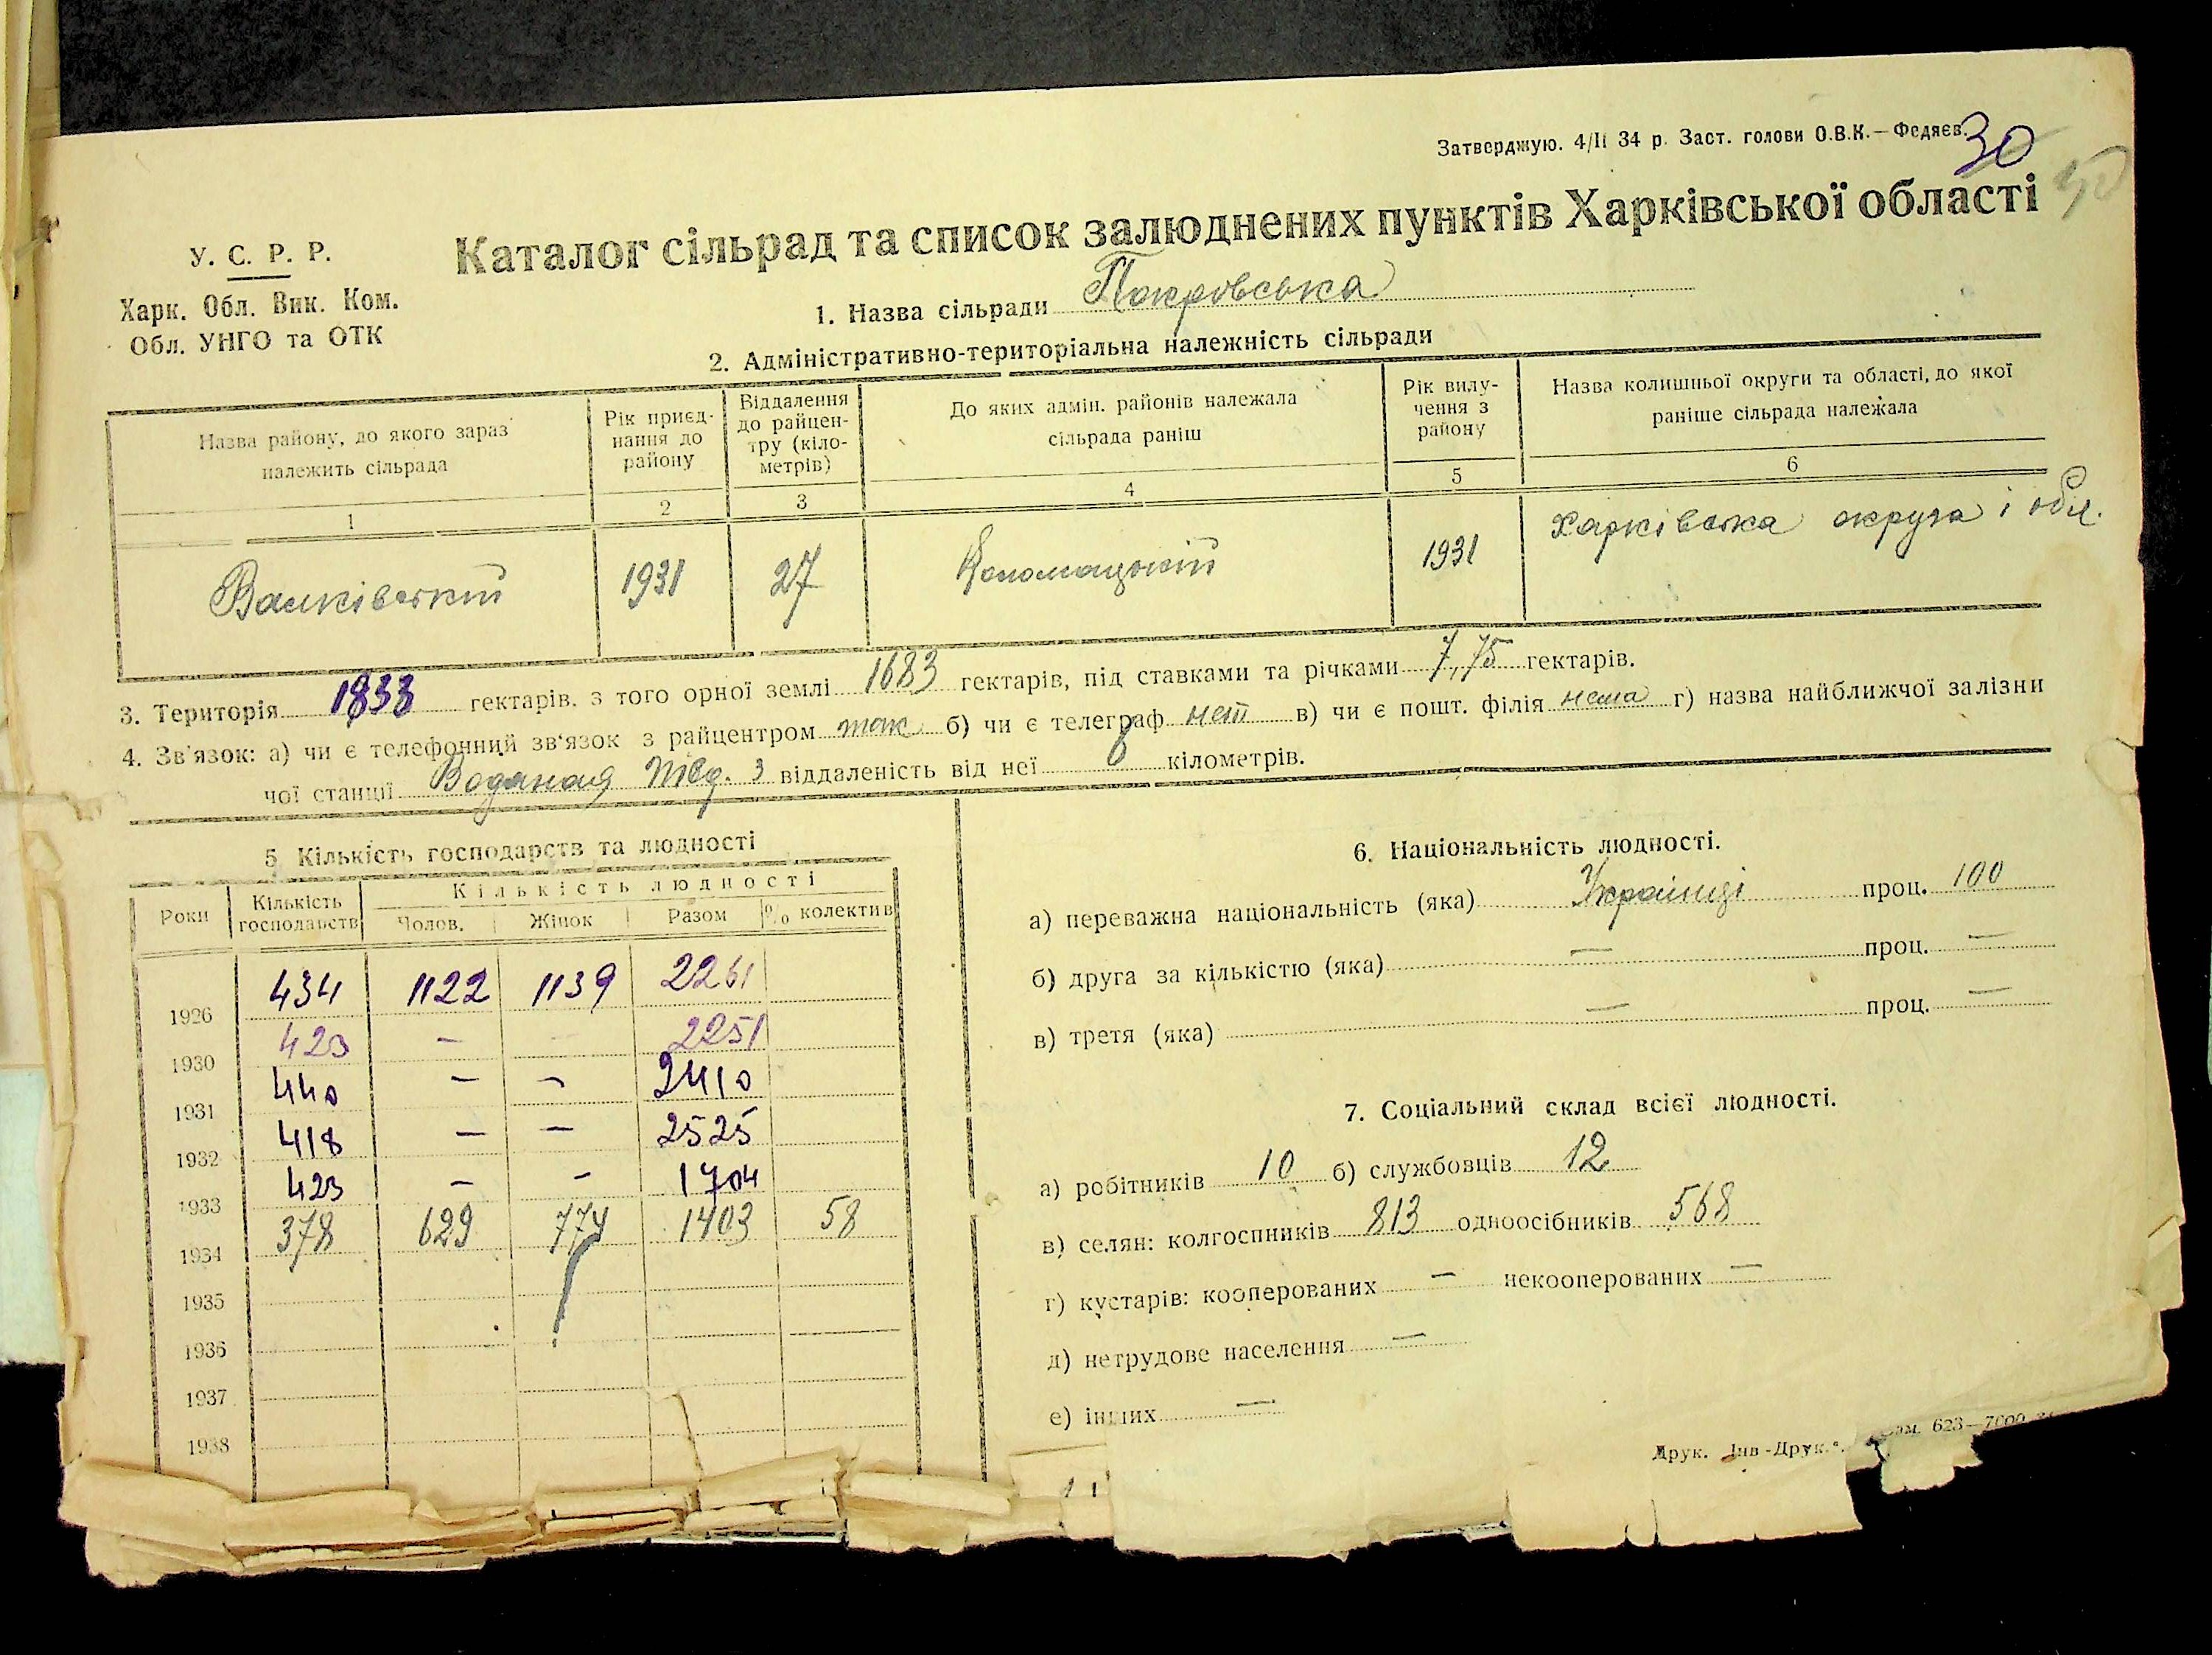 Затверджую. 4/II 34 р. Заст. голови О.В.К.—Федяєв.
30
У. С. Р. Р.
Харк. Обл. Вик. Ком.
Обл. УНГО та ОТК
Каталог сільрад та список залюднених пунктів Харківської області
1. Назва сільради Покровська
2. Адміністративно-територіальна належність сільради
Назва району, до якого зараз належить сільрада | Рік приєднання до району | Віддалення до райцентру (кілометрів) | До яких адмін. районів належала сільрада раніш | Рік вилучення з району | Назва колишньої округи та області, до якої раніше сільрада належала
1 2 3 4 5 6
Валківський 1931 27 Коломацький 1931 Харківська округа і обл.
3. Територія 1833 гектарів. з того орної землі 1683 гектарів, під ставками та річками 7,75 гектарів.
4. Зв'язок: а) чи є телефонний зв'язок з райцентром так б) чи є телеграф нет в) чи є пошт. філія нема г) назва найближчої залізни
чої станції Водяная Півд. З віддаленість від неї 8 кілометрів.
5 Кількість господарств та людності
Роки | Кількість господарств | Кількість людності
Чолов. | Жінок | Разом | % колектив
1926 434 1122 1139 2261
1930 423 — — 2251
1931 440 — — 2410
1932 418 — — 2525
1933 423 — — 1704
1934 378 629 774 1403 58
1935
1936
1937
1938
6. Національність людності.
а) переважна національність (яка) Українці проц. 100
б) друга за кількістю (яка) — проц. —
в) третя (яка) — проц. —
7. Соціальний склад всієї людності.
а) робітників 10 б) службовців 12
в) селян: колгоспників 813 одноосібників 568
г) кустарів: кооперованих — некооперованих —
д) нетрудове населення —
е) інших —
Друк. „Інв-Друк". Зам. 623—7000